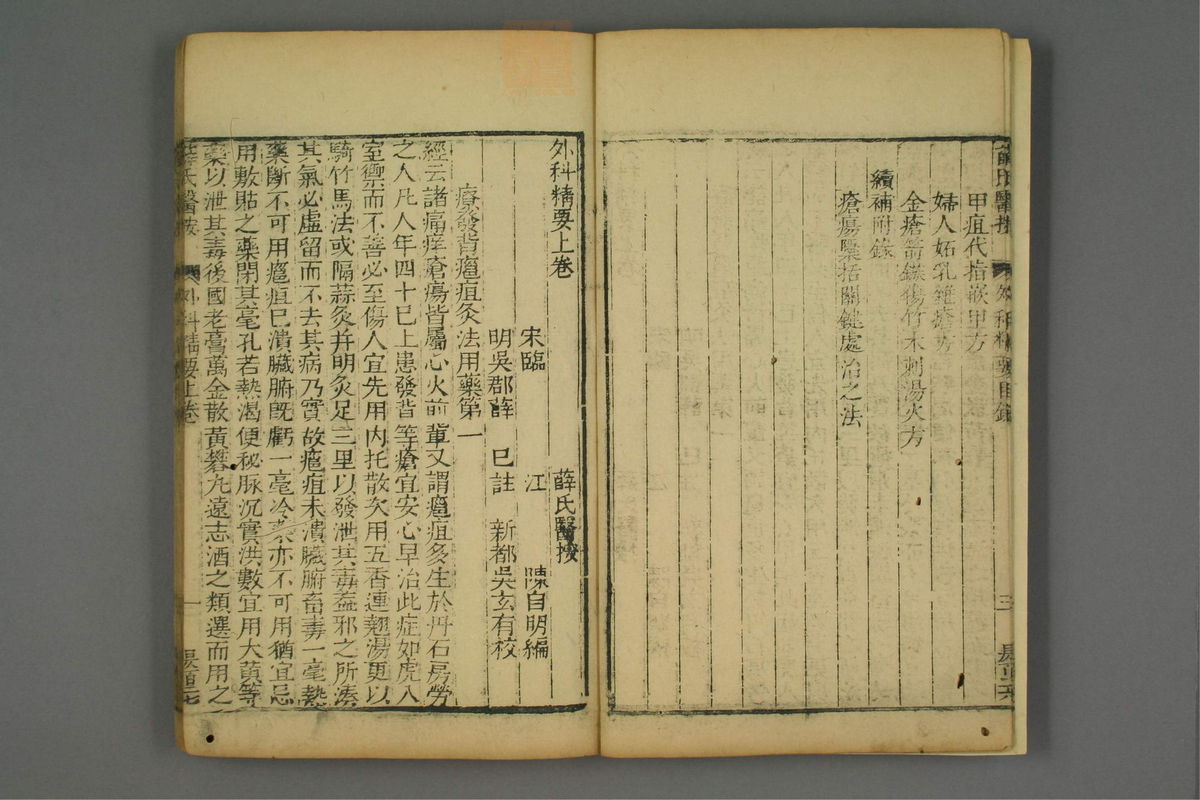 甲疽代指嵌甲方
婦人妬乳雜瘡方
金瘡箭鏃傷竹木刺湯火方
續補附錄
瘡瘍檃括關鍵處治之法
外科精要目錄
三
外科精要上卷 薛氏醫按
宋臨 江 陳自明編
明吳郡薛 己註 新都吳玄有校
療發背癰疽灸法用藥第一
經云諸痛痒瘡瘍皆屬心火前輩又謂癰疽多生於丹石房勞
之人凡人年四十巳上患發背等瘡宜安心早治此症如虎入
室禦而不善必至傷人宜先用内托散次用五香連翹湯更以
騎竹馬法或隔蒜灸并明灸足三里以發泄其毒蓋邪之所湊
其氣必虛留而不去其病乃實故癰疽未潰臟腑畜毒一毫熱
藥斷不可用癰疽巳潰臟腑旣虧一毫冷藥亦不可用猶宜忌
用敷貼之藥閉其毫孔若熱渴便秘脉沉實洪數宜用大黃等
藥以泄其毒後國老膏萬金散黃耆丸遠志酒之類選而用之
薛氏醫按 外科精要上卷 一